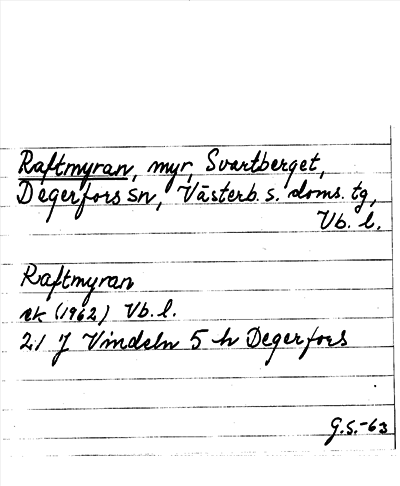 Raftmyran, myr, Svartberget,
Degerfors sn, Västerb. s. doms. tg,
Vb. l.
Raftmyran
ek (1962) Vb. l.
21 J Vindeln 5 h Degerfors
G.S.-63